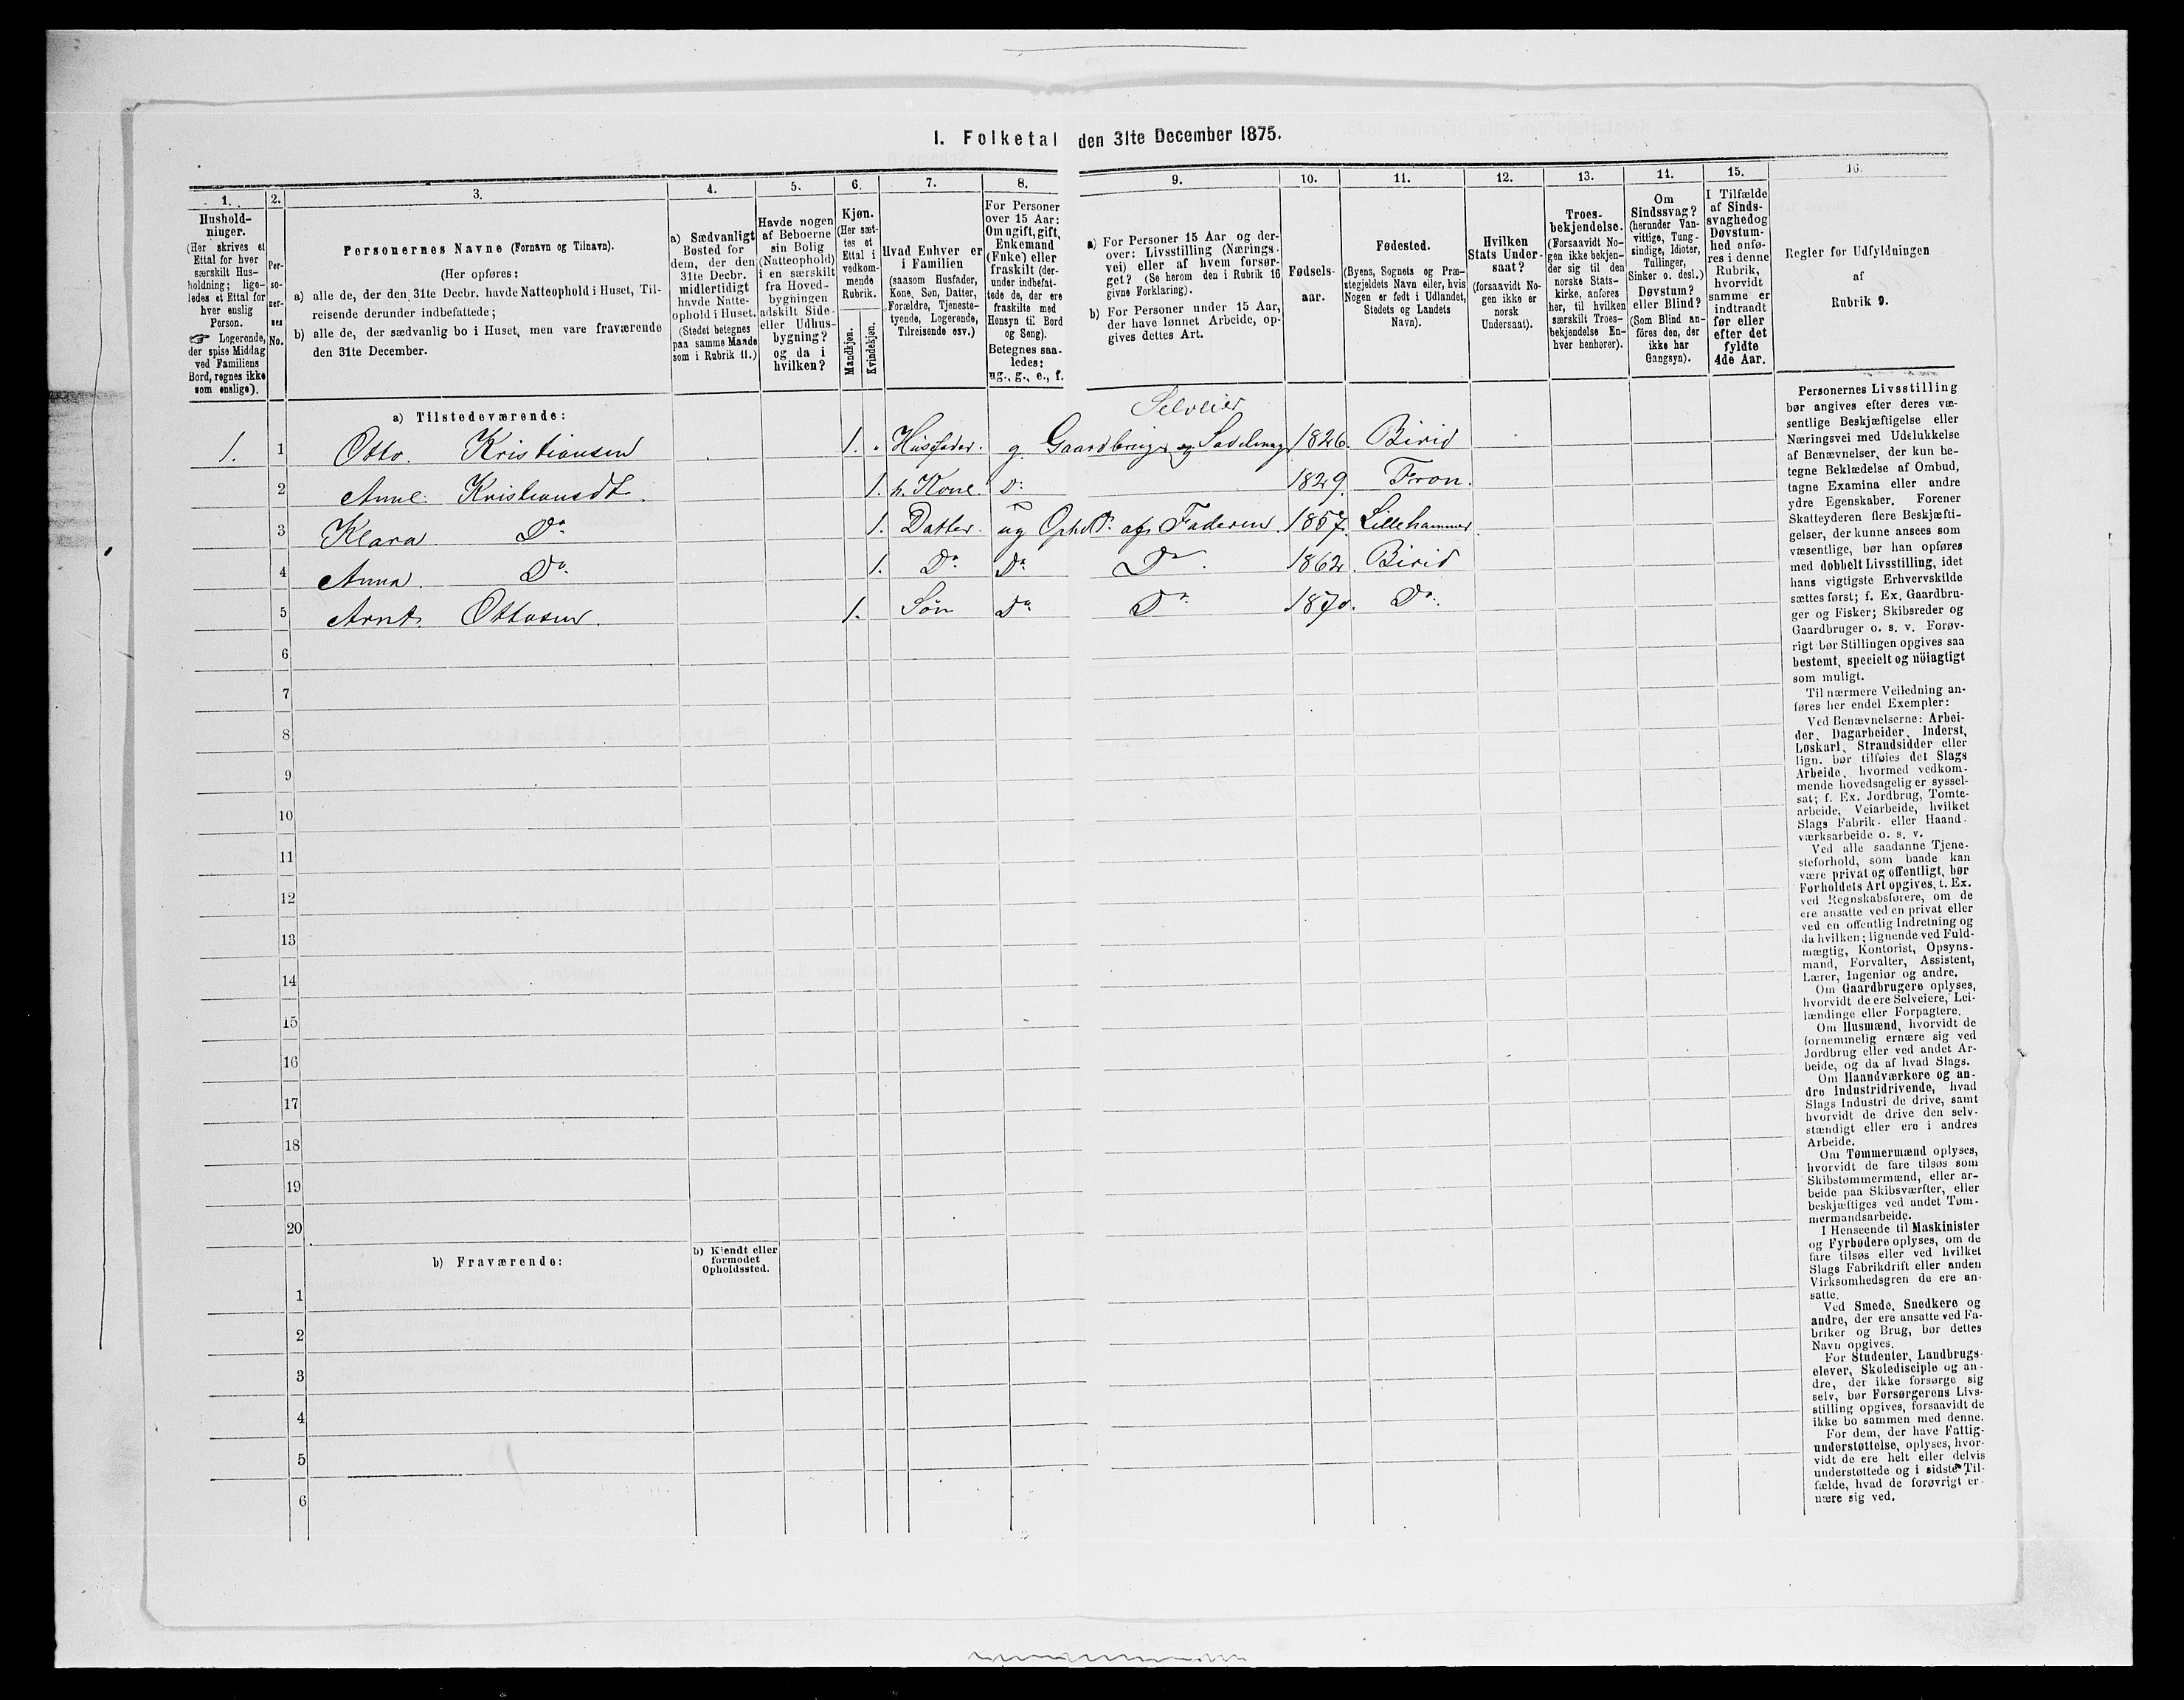 I. Folketal den 31te December 1875.
1.
Hushold-
ninger.
(Her skrives et
Ettal for hver
særskilt Hus-
holdning; lige-
ledes et Ettal for
hver enslig
Person.
☞ Logerende,
der spise Middag
ved Familiens
Bord, regnes ikke
som enslige).
2.
Per-
so-
ner-
nes
No.
3.
Personernes Navne (Fornavn og Tilnavn).
(Her opføres:
a) alle de, der den 31te Decbr. havde Natteophold i Huset, Til-
reisende derunder indbefattede;
b) alle de, der sædvanlig bo i Huset, men vare fraværende
den 31te December.
4.
a) Sædvanligt
Bosted for
dem, der den
31te Decbr.
midlertidigt
havde Natte-
ophold i Huset.
(Stedet betegnes
paa samme Maade
som i Rubrik 11.)
5.
Havde nogen
af Beboerne
sin Bolig
(Natteophold)
i en særskilt
fra Hoved-
bygningen
adskilt Side-
eller Udhus-
bygning?
og da i
hvilken?
6.
Kjøn.
(Her sæt-
tes et
Ettal i
vedkom-
mende
Rubrik.
Mandkjøn.
Kvindekjøn.
7.
Hvad Enhver er
i Familien
(saasom Husfader,
Kone, Søn, Datter,
Forældre, Tjeneste-
tyende, Logerende,
Tilreisende osv.)
8.
For Personer
over 15 Aar:
Om ugift, gift,
Enkemand
(Enke) eller
fraskilt (der-
under indbefat-
tede de, der ere
fraskilte med
Hensyn til Bord
og Seng).
Betegnes saa-
ledes:
ug., g., e., f.
9.
a) For Personer 15 Aar og der-
over: Livsstilling (Nærings-
vei) eller af hvem forsør-
get? (Se herom den i Rubrik 16
givne Forklaring).
b) For Personer under 15 Aar,
der have lønnet Arbeide, op-
gives dettes Art.
10.
Fødsels-
aar.
11.
Fødested.
(Byens, Sognets og Præ-
stegjeldets Navn eller, hvis
Nogen er født i Udlandet,
Stedets og Landets
Navn).
12.
Hvilken
Stats Under-
saat?
(forsaavidt No-
gen ikke er
norsk
Undersaat).
13.
Troes-
bekjendelse.
(Forsaavidt No-
gen ikke bekjen-
der sig til den
norske Stats-
kirke, anføres
her, til hvilken
særskilt Troes-
bekjendelse En-
hver henhører).
14.
Om
Sindssvag?
(herunder Van-
vittige, Tung-
sindige, Idioter,
Tullinger,
Sinker o. desl.)
Døvstum?
eller Blind?
(Som Blind an-
føres den, der
ikke har
Gangsyn).
15.
I Tilfælde
af Sinds-
svaghed og
Døvstum-
hed anfø-
res i denne
Rubrik,
hvorvidt
samme er
indtraadt
før eller
efter det
fyldte
4de Aar.
16.
Regler for Udfyldningen
af
Rubrik 9.
a) Tilstedeværende:
Selveier
1. 1 Otto. Kristiansen 1. Husfader. g. Gaardbruger og Sadelmag 1826. Birid
2 Anne Kristiansdt. 1. h. Kone. Do 1829. Fron.
3 Klara Do. 1. Datter. ug Ophdt: afs Faderen. 1857. Lillehammer.
4 Anna. Do. 1. Do. Do Do. 1862. Birid
5 Arnt. Ottosen. 1. Søn Do Do. 1870. Do.
6
7
8
9
10
11
12
13
14
15
16
17
18
19
20
b) Fraværende:
b) Kjendt eller
formodet
Opholdssted.
1
2
3
4
5
6
Personernes Livsstilling
bør angives efter deres væ-
sentlige Beskjæftigelse eller
Næringsvei med Udelukkelse
af Benævnelser, der kun be-
tegne Beklædelse af Ombud,
tagne Examina eller andre
ydre Egenskaber. Forener
Skatteyderen flere Beskjæfti-
gelser, der kunne ansees som
væsentlige, bør han opføres
med dobbelt Livsstilling, idet
hans vigtigste Erhvervskilde
sættes først; f. Ex. Gaardbru-
ger og Fisker; Skibsreder og
Gaardbruger o. s. v. Forøv-
rigt bør Stillingen opgives saa
bestemt, specielt og nöiagtigt
som muligt.
Til nærmere Veiledning an-
føres her endel Exempler:
Ved Benævnelserne: Arbei-
der, Dagarbeider, Inderst,
Løskarl, Strandsidder eller
lign. bør tilføies det Slags
Arbeide, hvormed vedkom-
mende hovedsagelig er syssel-
sat; f. Ex. Jordbrug, Tomte-
arbeide, Veiarbeide, hvilket
Slags Fabrik- eller Haand-
værksarbeide o. s. v.
Ved alle saadanne Tjene-
steforhold, som baade kan
være privat og offentligt, bør
Forholdets Art opgives, t. Ex.
ved Regnskabsførere, om de
ere ansatte ved en privat eller
ved en offentlig Indretning og
da hvilken; lignende ved Fuld-
mægtig, Kontorist, Opsyns-
mand, Forvalter, Assistent,
Lærer, Ingeniør og andre.
Om Gaardbrugere oplyses,
hvorvidt de ere Selveiere, Lei-
lændinge eller Forpagtere.
Om Husmænd, hvorvidt de
fornemmelig ernære sig ved
Jordbrug eller ved andet Ar-
beide, og da af hvad Slags.
Om Haandværkere og an-
dre Industridrivende, hvad
Slags Industri de drive, samt
hvorvidt de drive den selv-
stændigt eller ere i andres
Arbeide.
Om Tømmermænd oplyses,
hvorvidt de fare tilsøs som
Skibstømmermænd, eller ar-
beide paa Skibsværfter, eller
beskjæftiges ved andet Tøm-
mermandsarbeide.
I Henseende til Maskinister
og Fyrbødere oplyses, om de
fare tilsøs eller ved hvilket
Slags Fabrikdrift eller anden
Virksomhedsgren de ere an-
satte.
Ved Smede, Snedkere og
andre, der ere ansatte ved Fa-
briker og Brug, bør dettes
Navn opgives.
For Studenter, Landbrugs-
elever, Skoledisciple og an-
dre, der ikke forsørge sig
selv, bør Forsørgerens Livs-
stilling opgives, forsaavidt de
ikke bo sammen med denne.
For dem, der have Fattig-
understøttelse, oplyses, hvor-
vidt de ere helt eller delvis
understøttede og i sidste Til-
fælde, hvad de forøvrigt er-
nære sig ved.